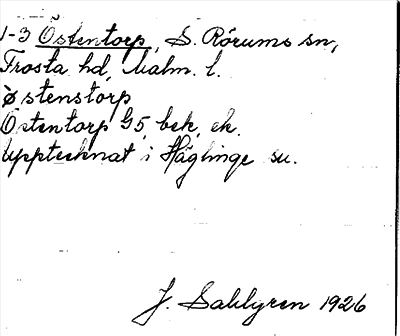 1-3 Östentorp, S. Rörums sn,
Frosta hd, Malm. l.
østenstorp
Östentorp G5, bek, ek.
Upptecknat i Häglinge sn.
J. Sahlgren 1926